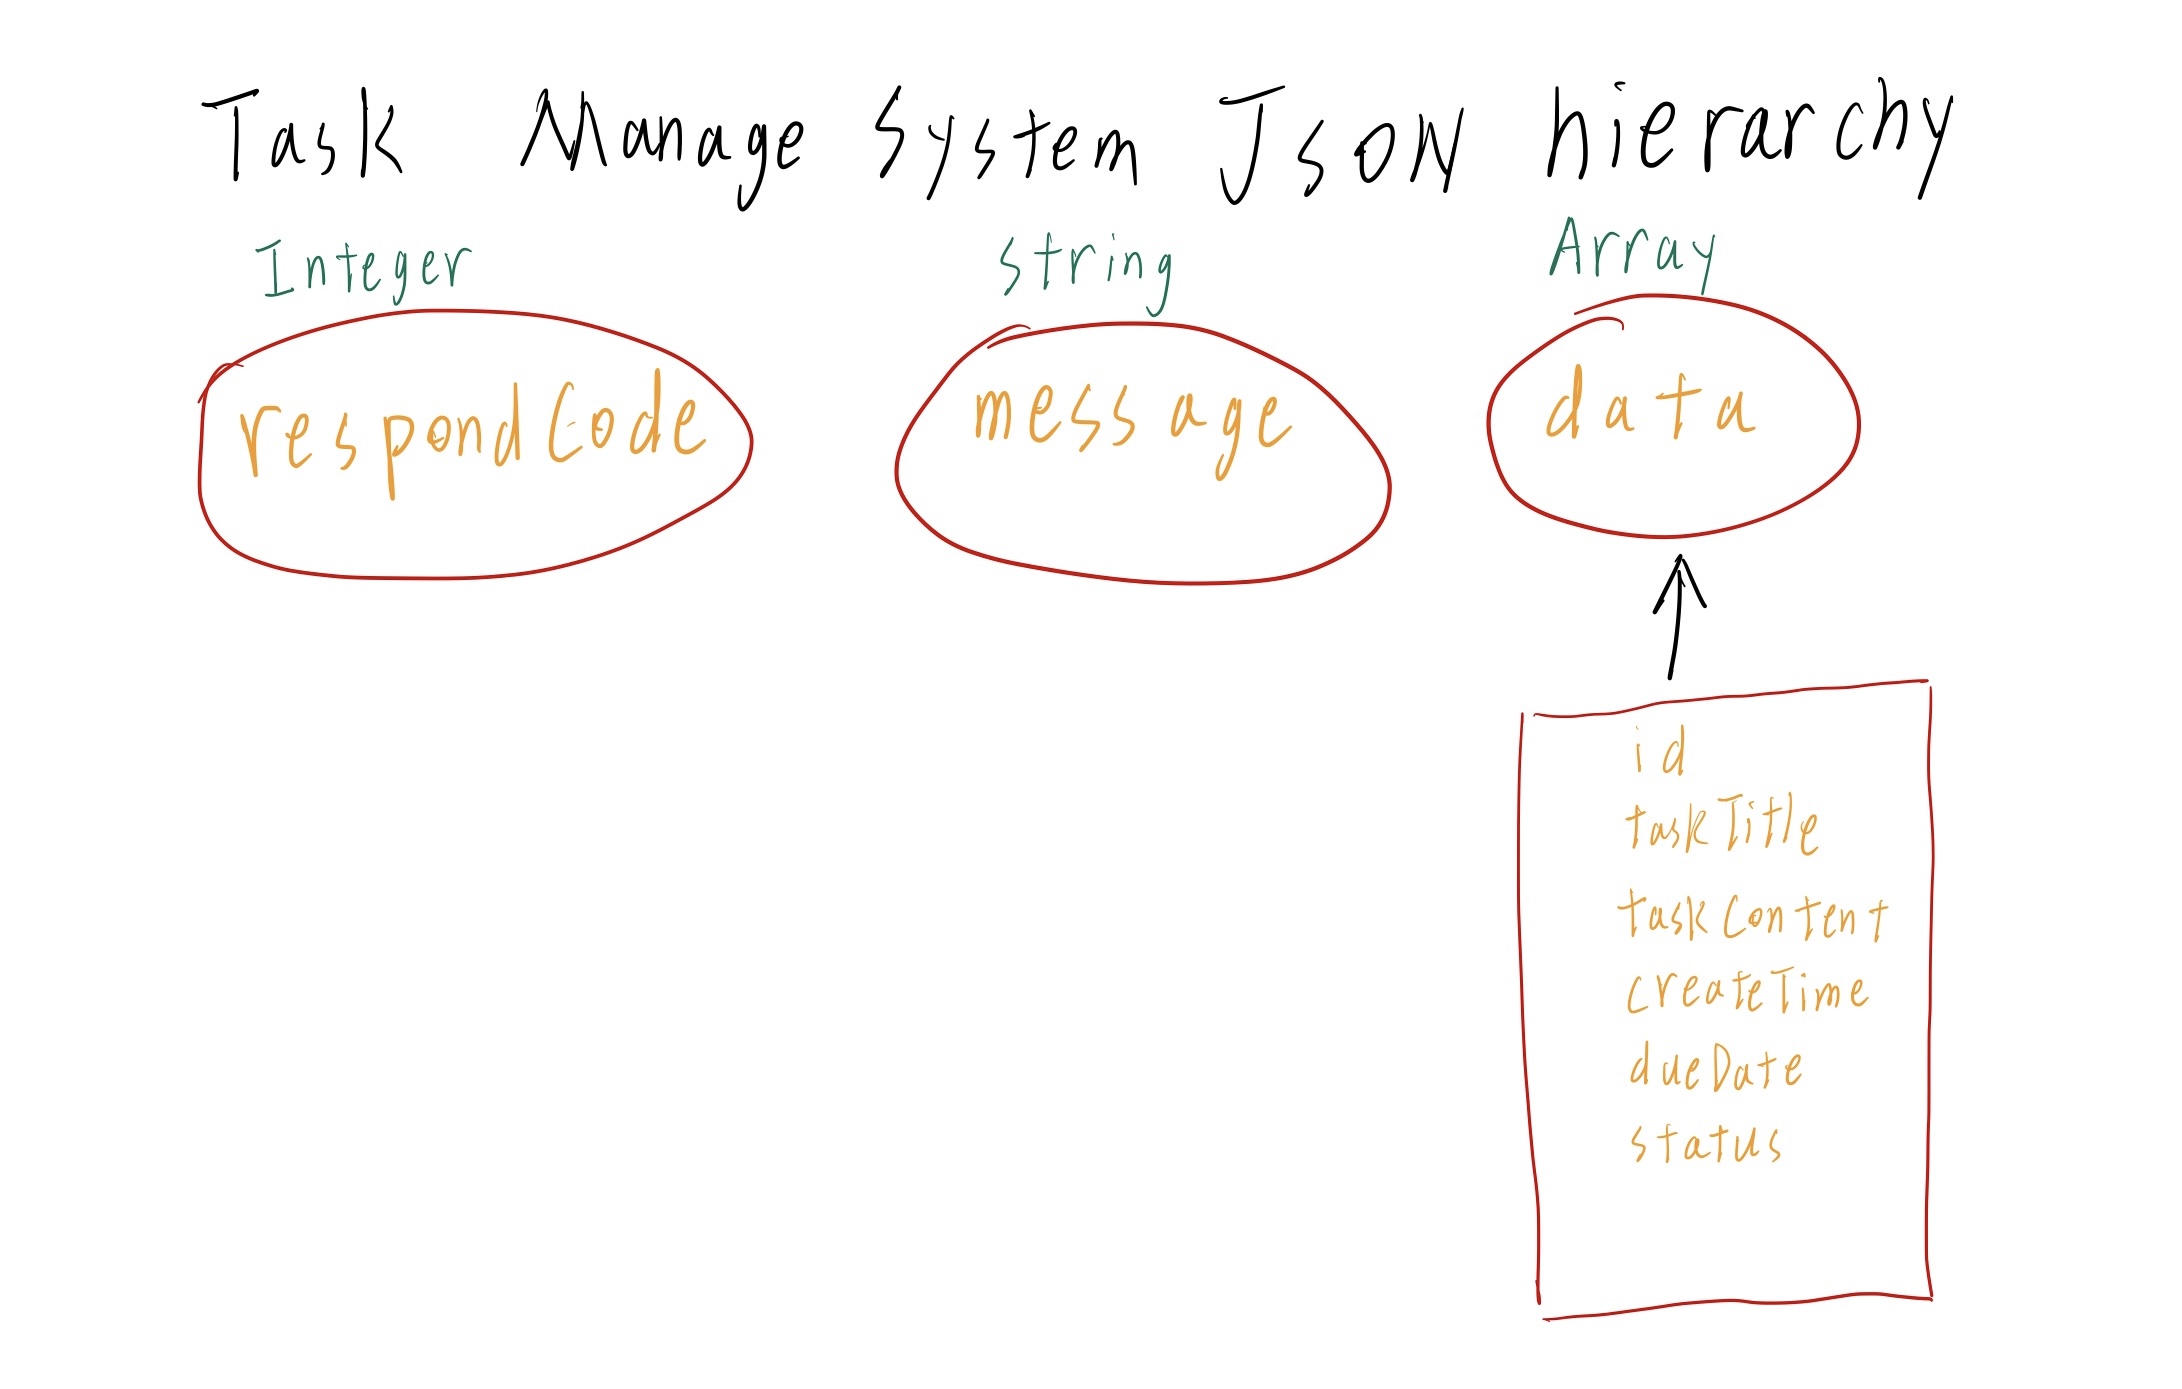 Task Manage System JsoN hierarchy
Integer string Array
respondCode message data
id
taskTitle
taskContent
createTime
dueDate
status